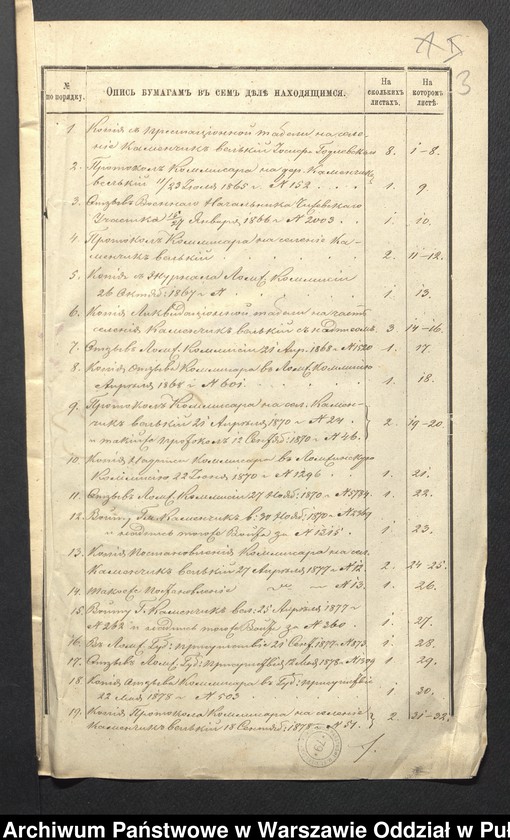 3
№ по порядку.
Опись бумагамъ въ семъ дѣлѣ находящимся.
На сколькихъ листахъ.
На которомъ листѣ.
1. Копія съ Престаціонной табели на селе-
ніе Каменчикъ велькій 8. 1-8.
2. Протоколъ Коммисара на дер. Каменчикъ
велькій 11/23 Іюля 1865 г N 152 1. 9.
3. Отзывъ Военнаго Начальника Чижевскаго
Участка Января 1866 г N 2003 1. 10.
4. Протоколъ Коммисара на селеніе Ка-
менчикъ велькій 2. 11-12.
5. Копія съ Журнала Ломж. Коммисіи
26 Октяб: 1867 г N 1. 13.
6. Копія Ликвидаціонной табели на часть
селенія Каменчикъ велькій съ надписью 3 14-16.
7. Отзывъ Ломж. Коммисіи 21 Апр. 1868 г N 1520 1. 17.
8. Копія Отзыва Коммисара въ Ломж. Коммисію
Апрѣля 1868 г N 601 1. 18.
9. Протоколъ Коммисара на сел. Камен-
чикъ велькій 21 Апрѣля 1870 г N 24.
и таковой протоколъ 12 Сентяб: 1870 г N 46. 2. 19-20.
10. Копія Коммисара въ Ломжинскую
Коммисію 22 Іюня 1870 г N 1296. 1. 21.
11. Отзывъ Ломж. Коммисіи 27 Нояб: 1870 г N 5784. 1. 22.
12. Войту Гм. Каменчикъ в: 30 Нояб: 1870 г
и Войта за N 1215. 1. 23.
13. Копія Постановленія Коммисара на сел.
Каменчикъ велькій 27 Апрѣля 1877 г N 12. 2. 24-25.
14. Таковое Постановленіе N 13. 1. 26.
15. Войту Г. Каменчикъ вел: 25 Апрѣля 1877 г
N 262 и Войта за N 360. 1. 27.
16. Въ Ломж. Губ: присутствіе 21 Сент. 1877 г. N 873 1. 28.
17. Отзывъ Ломж. Губ: присутствія Мая 1878 г N 1509 1. 29.
18. Копія Отзыва Коммисара въ Губ: присутствіе
22 Мая 1878 г N 503 1. 30.
19. Копія Протокола Коммисара на селеніе
Каменчикъ велькій 18 Сентяб: 1878 г N 51. 2. 31-32.
79
Archiwum Państwowe w Warszawie Oddział w Puł